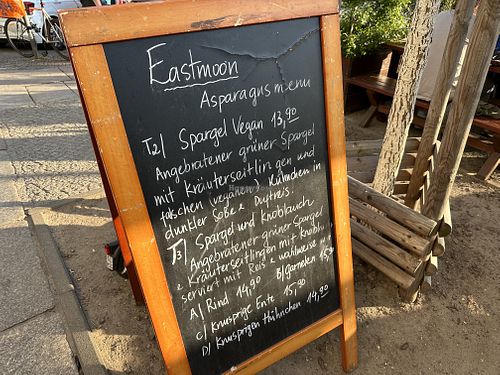 Eastmoon
Asparagus menu
T2) Spargel Vegan 13,90
Angebratener grüner Spargel
mit Kräuterseitlingen und
falschen veganen Hühnchen in
dunkler Soße & Duftreis.
T3) Spargel und Knoblauch
Angebratener grüner Spargel
& Kräuterseitlingen mit Knobl.
serviert mit Reis & wahlweise
A) Rind 14,90 B) Garnelen 15,
C) Knusprige Ente 15,90
D) Knusprigen Hühnchen 14,90